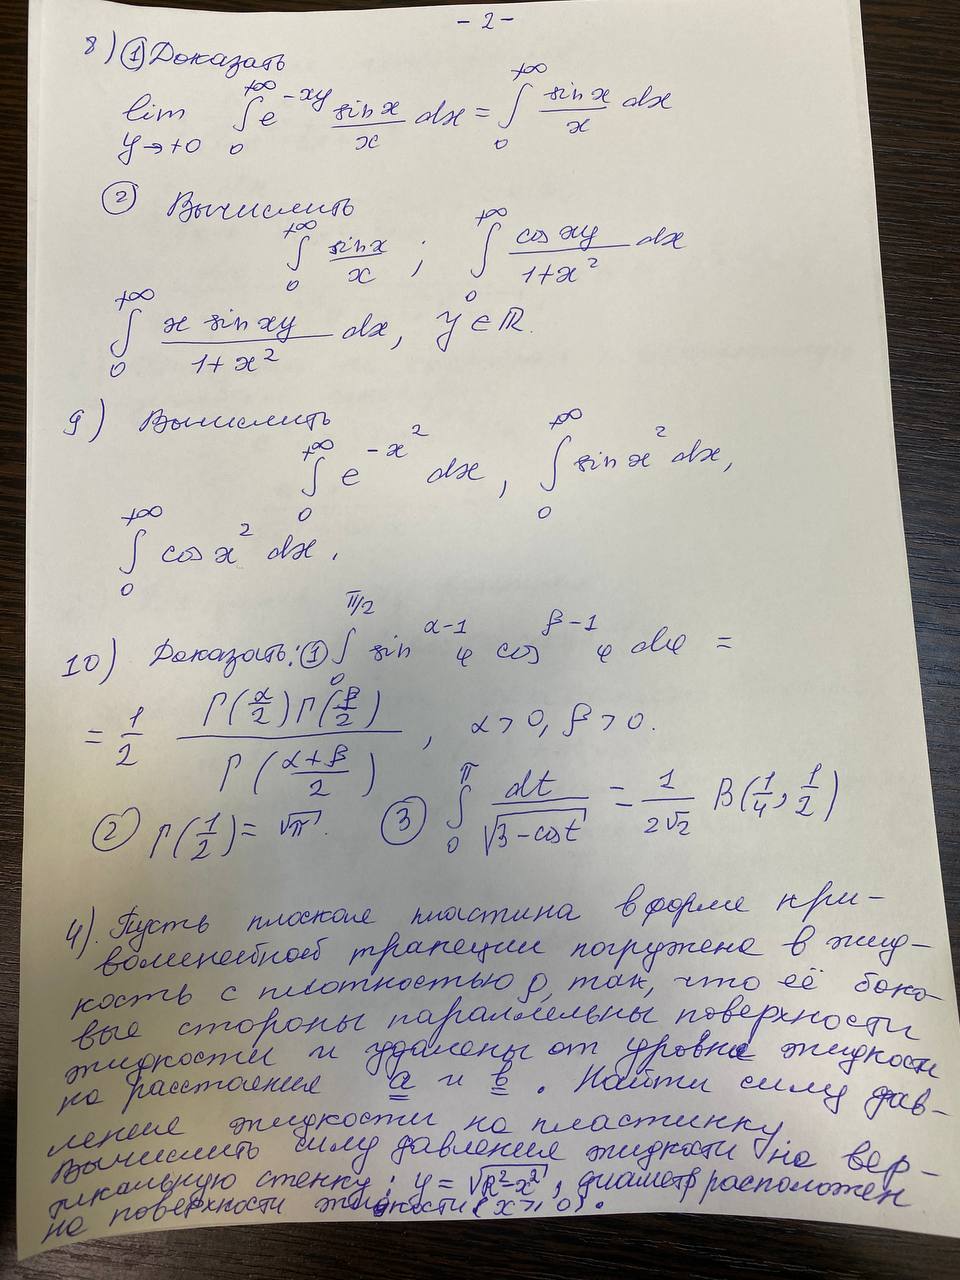 - 2 -
8) ① Доказать
lim_{y→+0} ∫_0^{+∞} e^{-xy} \frac{sin x}{x} dx = ∫_0^{+∞} \frac{sin x}{x} dx
② Вычислить
∫_0^{+∞} \frac{sin x}{x} ; ∫_0^{+∞} \frac{cos xy}{1+x^2} dx
∫_0^{+∞} \frac{x sin xy}{1+x^2} dx, y ∈ ℝ.
9) Вычислить
∫_0^{+∞} e^{-x^2} dx, ∫_0^{+∞} sin x^2 dx,
∫_0^{+∞} cos x^2 dx.
10) Доказать: ① ∫_0^{π/2} sin^{α-1} φ cos^{β-1} φ dφ =
= \frac{1}{2} \frac{Γ(\frac{α}{2}) Γ(\frac{β}{2})}{Γ(\frac{α+β}{2})}, α > 0, β > 0.
② Γ(\frac{1}{2}) = √π. ③ ∫_0^{π} \frac{dt}{\sqrt{3 - cos t}} = \frac{1}{2√2} B(\frac{1}{4}, \frac{1}{2})
4). Пусть плоская пластина в форме кри-
волинейной трапеции погружена в жид-
кость с плотностью ρ, так, что её боко-
вые стороны параллельны поверхности
жидкости и удалены от уровня жидкости
на расстояния a и b. Найти силу дав-
ления жидкости на пластинку
Вычислить силу давления жидкости на вер-
тикальную стенку: y = √(R²-x²), диаметр расположен
на поверхности жидкости (x ≥ 0).